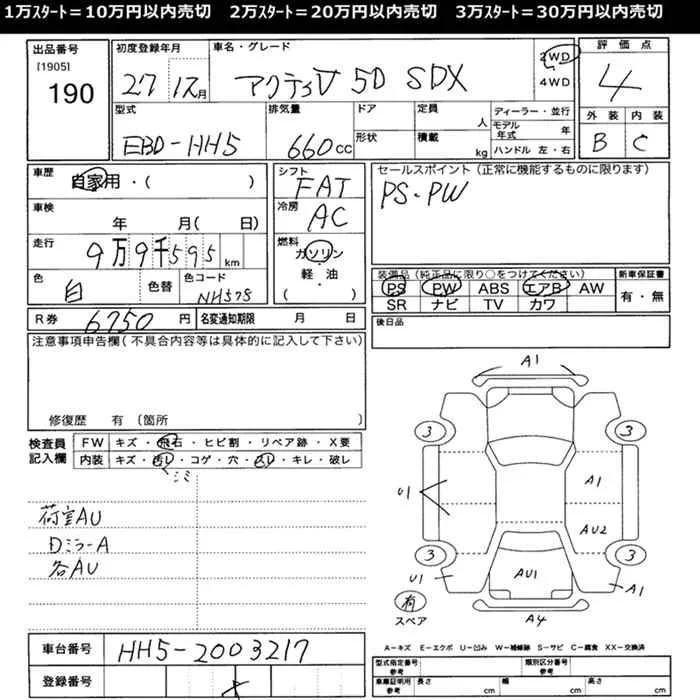 1万ｽﾀｰﾄ＝10万円以内売切　2万ｽﾀｰﾄ＝20万円以内売切　3万ｽﾀｰﾄ＝30万円以内売切
出品番号
[1905]
190
初度登録年月
27 12月
車名・グレード
アクティV 5D SDX
2WD
4WD
評価点
4
外装 内装
B C
型式
EBD-HH5
排気量
660cc
ドア
形状
定員 人
積載 kg
ディーラー・並行
モデル年式 年
ハンドル 左・右
車歴
自家用・( )
車検
年 月( 日)
走行
9万9千595km
色
白
色替
色コード
NH578
シフト
FAT
冷房
AC
燃料
ガソリン
軽・油
( )
セールスポイント(正常に機能するものに限ります)
PS・PW
装備品(純正品に限り○をつけてください)
PS PW ABS エアB AW
SR ナビ TV カワ
新車保証書
有・無
R券 6750円
名変通知期限 月 日
後日品
注意事項申告欄(不具合内容等は具体的に記入して下さい)
修復歴 有 〔箇所 〕
検査員記入欄
FW キズ・飛石・ヒビ割・リペア跡・X要
内装 キズ・汚レ・コゲ・穴・スレ・キレ・破レ
シミ
荷室AU
Dミラ-A
各AU
A1
3 3
A1
U1
AU2
3 3
U1
AU1
A1
有
スペア
A4
車台番号
HH5-2003217
登録番号
A-キズ E-エクボ U-凹み W-補修跡 S-サビ C-腐食 XX-交換済
型式指定番号
参考
類別区分番号
参考
車庫証明用
参考
長さ cm
幅 cm
高さ cm